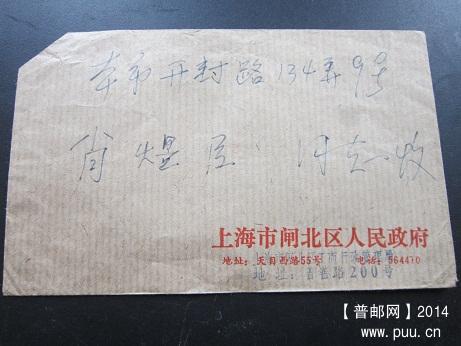 本市开封路134弄9号
肖煜臣 同志收
上海市闸北区人民政府
地址：天目西路55号 电话：564470
地址：晋巷路200号
【普邮网】2014
www.puu.cn